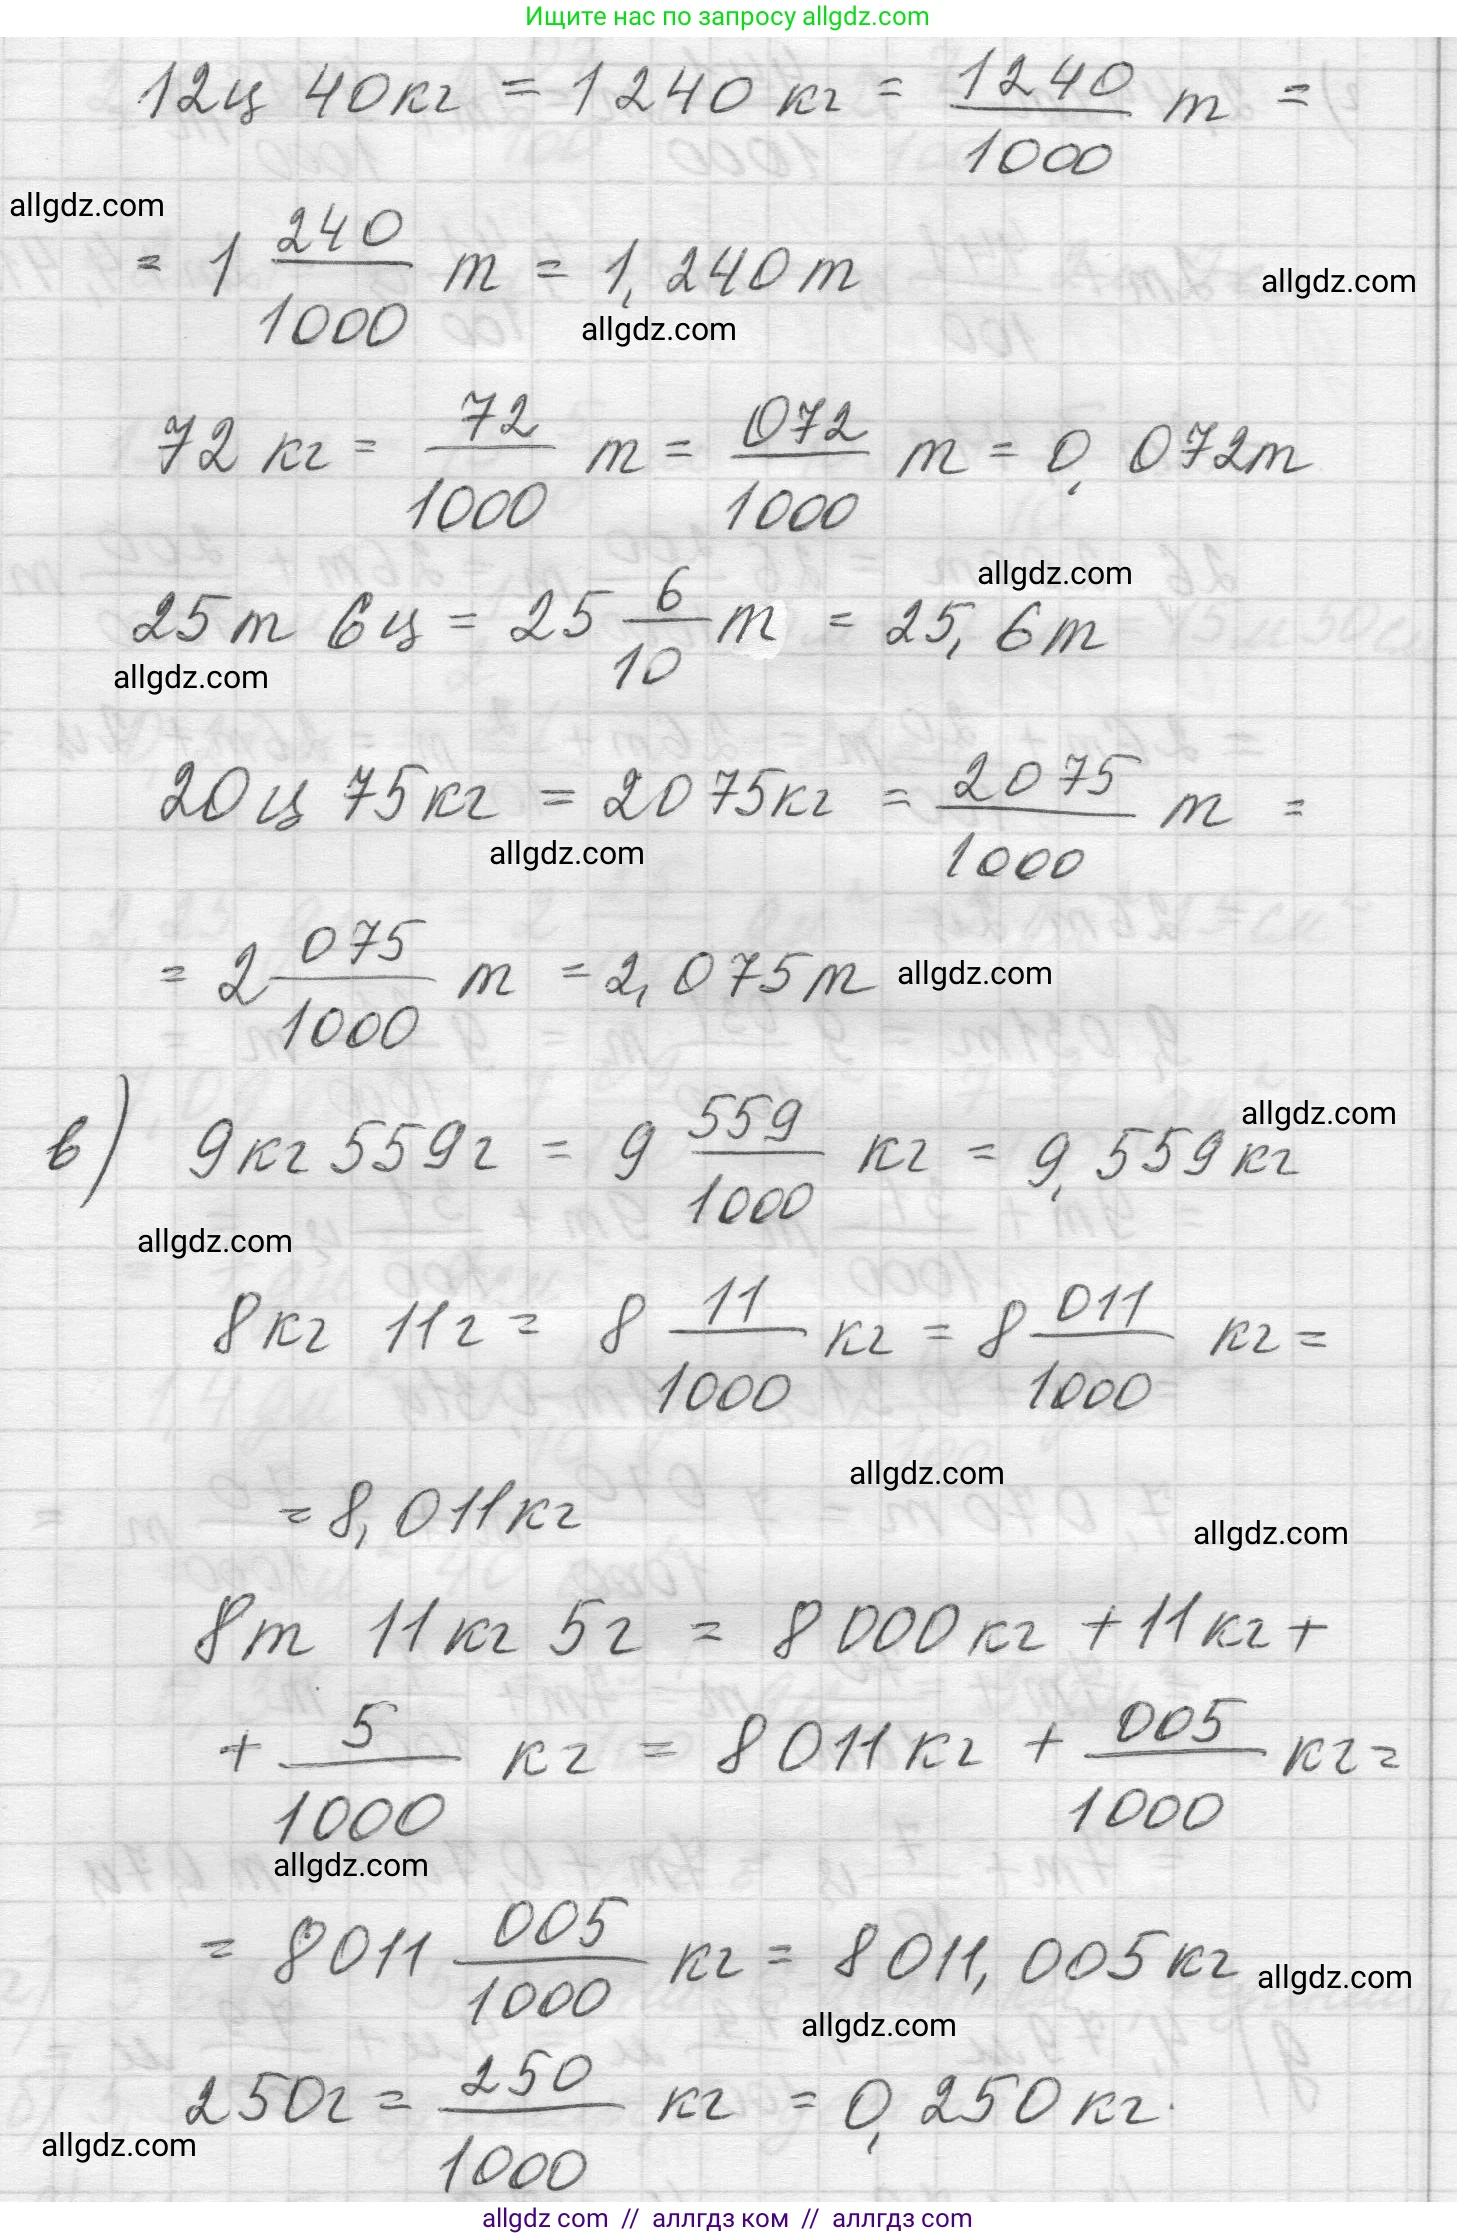 Ищите нас по запросу allgdz.com
12ц 40кг = 1240 кг = 1240/1000 т =
allgdz.com
= 1 240/1000 т = 1,240 т
allgdz.com
allgdz.com
72 кг = 72/1000 т = 072/1000 т = 0,072т
allgdz.com
25т 6ц = 25 6/10 т = 25,6т
allgdz.com
20ц 75кг = 2075кг = 2075/1000 т =
allgdz.com
= 2 075/1000 т = 2,075т
allgdz.com
в) 9кг 559г = 9 559/1000 кг = 9,559кг
allgdz.com
allgdz.com
8кг 11г = 8 11/1000 кг = 8 011/1000 кг =
= 8,011кг
allgdz.com
allgdz.com
8т 11кг 5г = 8000кг + 11кг +
+ 5/1000 кг = 8011кг + 005/1000 кг =
allgdz.com
= 8011 005/1000 кг = 8011,005кг
allgdz.com
allgdz.com
250г = 250/1000 кг = 0,250кг.
allgdz.com
allgdz.com // аллгдз ком // аллгдз.com